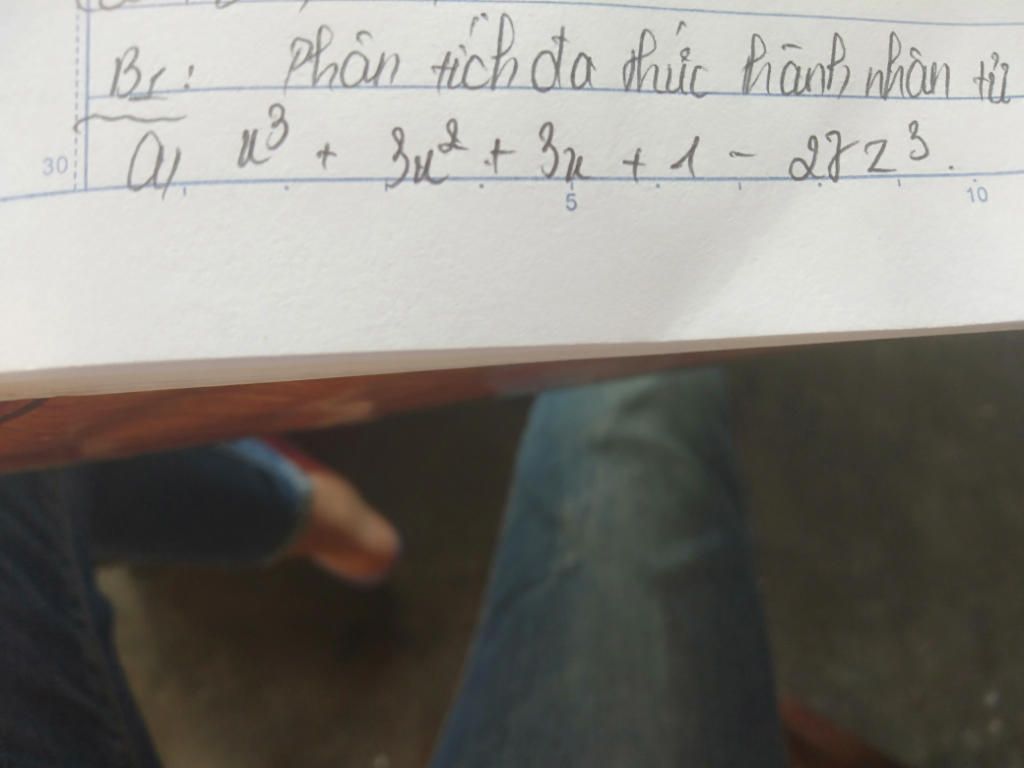 B1: Phân tích đa thức thành nhân tử
a) x³ + 3x² + 3x + 1 - 27z³.
30
5
10